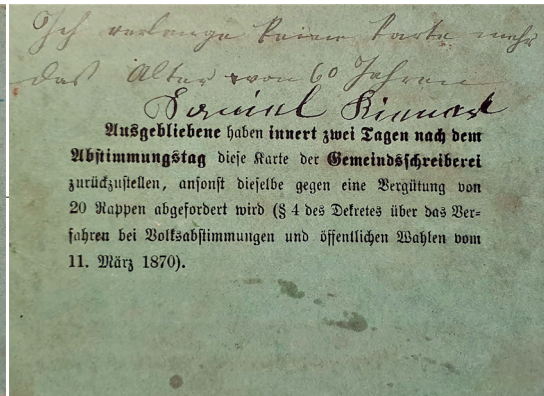 Ich verlange keine Karte mehr
das Alter von 60 Jahren
Samuel
Ausgebliebene haben innert zwei Tagen nach dem
Abstimmungstag diese Karte der Gemeindsschreiberei
zurückzustellen, ansonst dieselbe gegen eine Vergütung von
20 Rappen abgefordert wird (§ 4 des Dekretes über das Ver-
fahren bei Volksabstimmungen und öffentlichen Wahlen vom
11. März 1870).